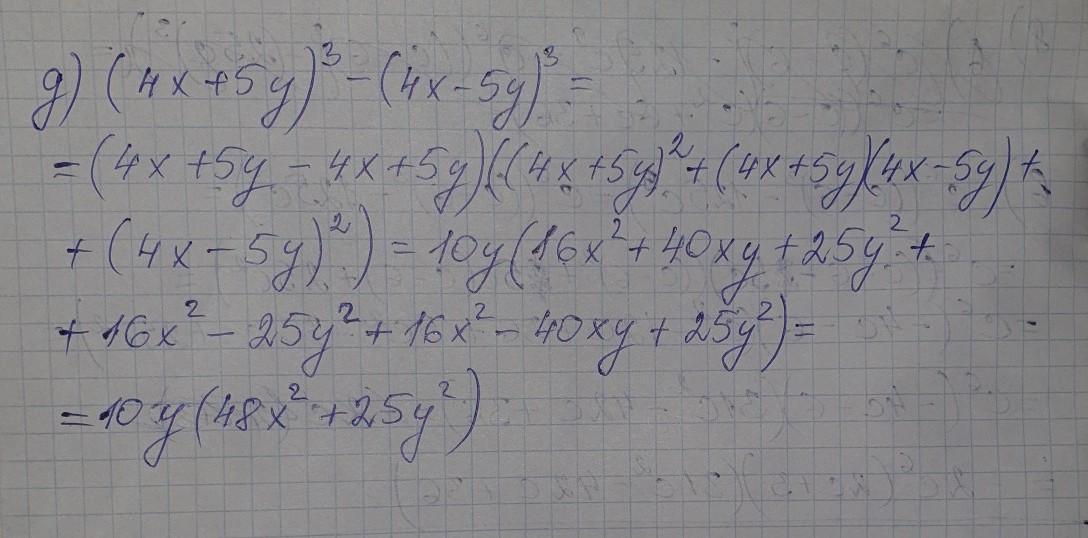 д) (4x+5y)³-(4x-5y)³=
=(4x+5y-4x+5y)((4x+5y)²+(4x+5y)(4x-5y)+
+(4x-5y)²)=10y(16x²+40xy+25y²+
+16x²-25y²+16x²-40xy+25y²)=
=10y(48x²+25y²)